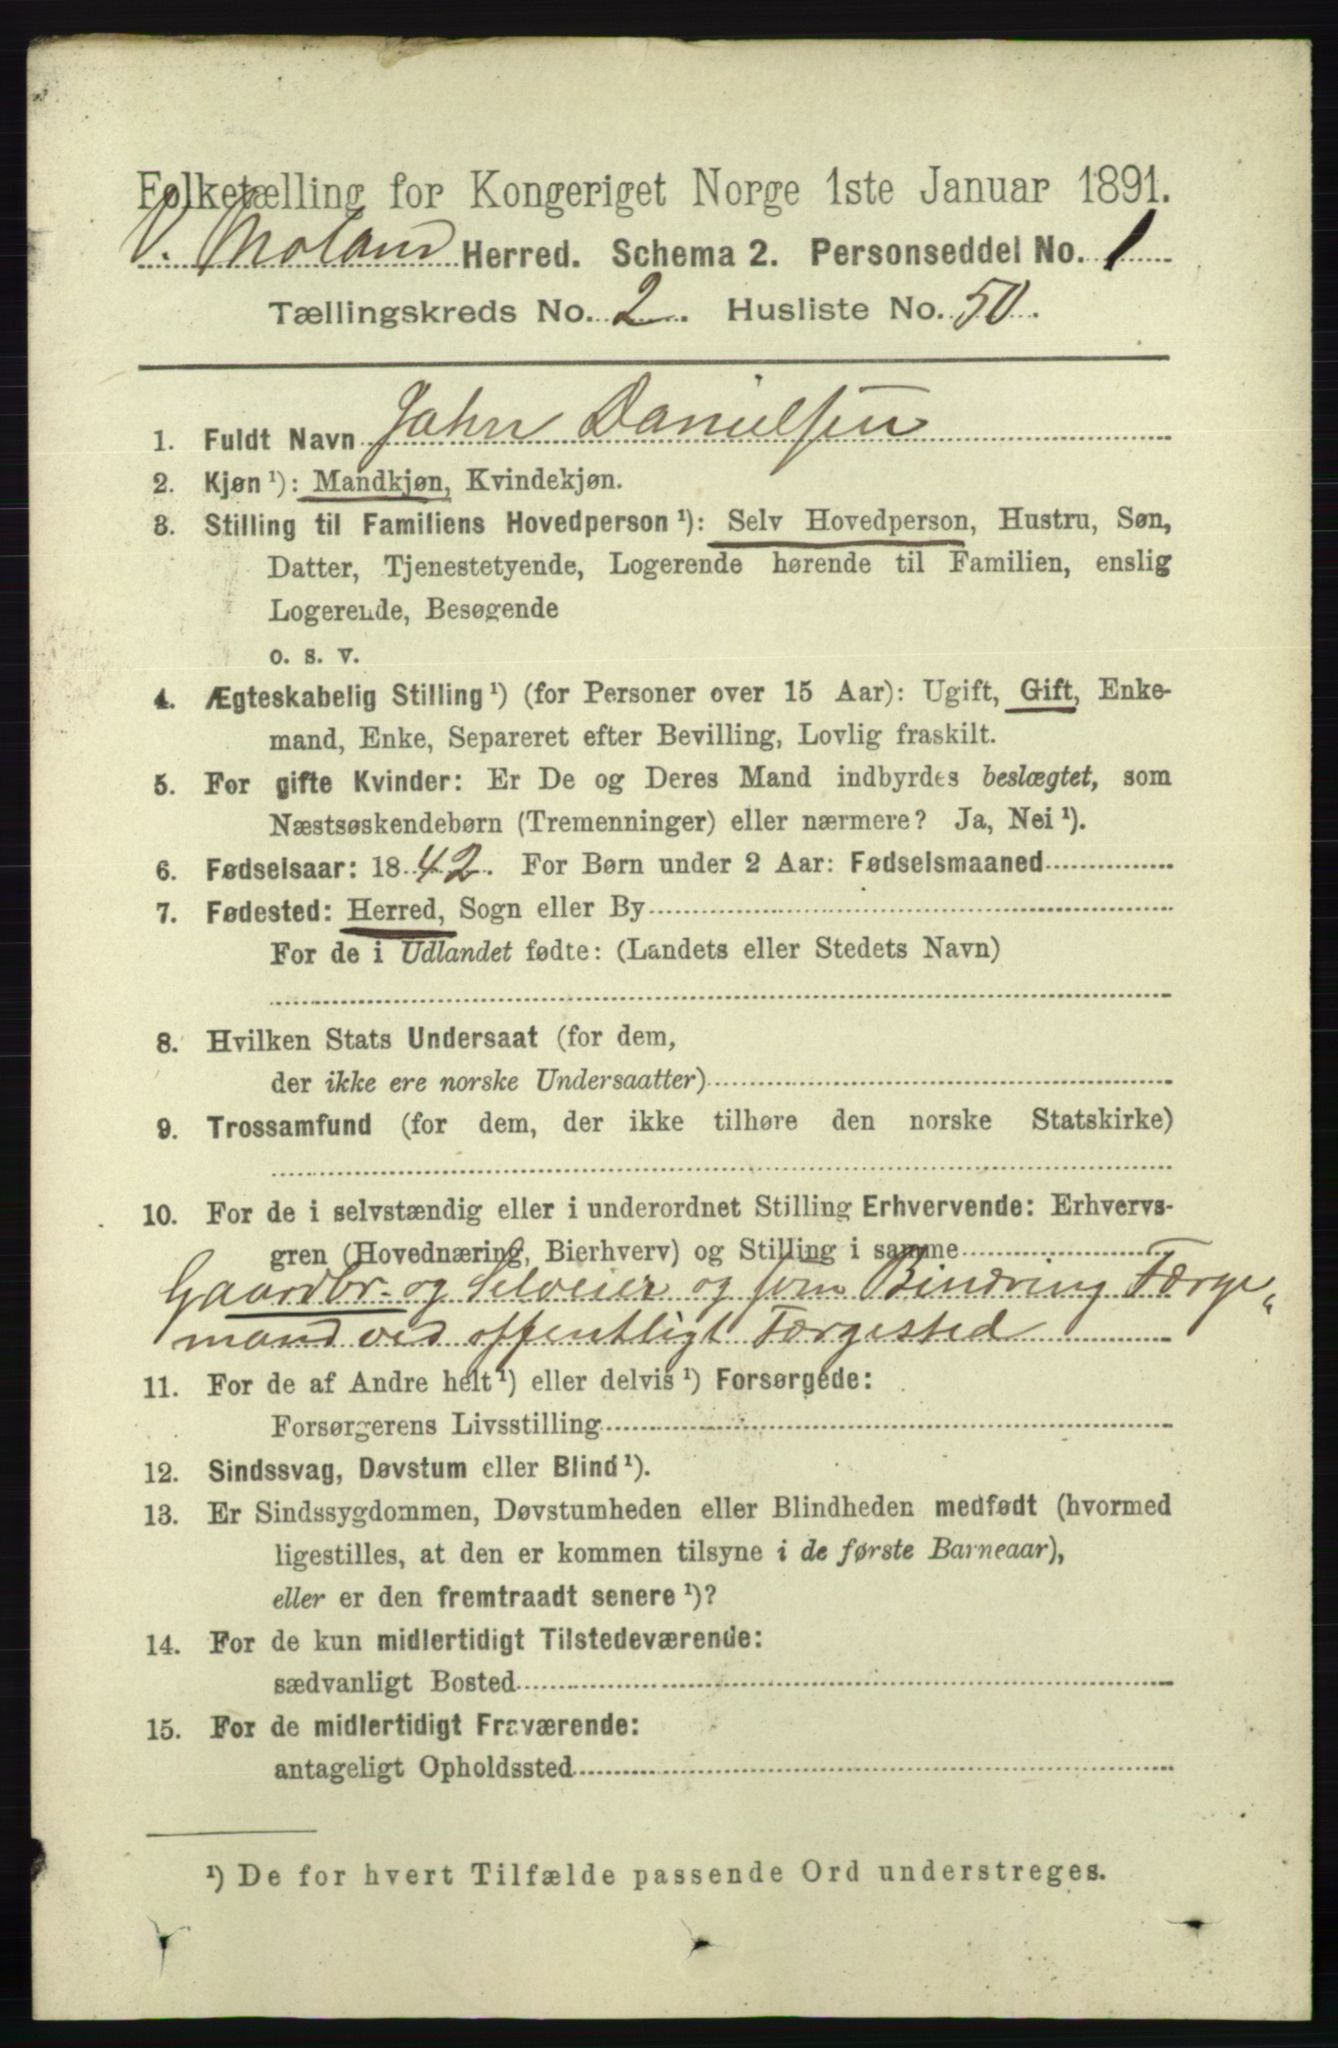 Folketælling for Kongeriget Norge 1ste Januar 1891.
V. Moland Herred. Schema 2. Personseddel No. 1
Tællingskreds No. 2. Husliste No. 50.
1. Fuldt Navn John Danielsen
2. Kjøn ¹): Mandkjøn, Kvindekjøn.
3. Stilling til Familiens Hovedperson ¹): Selv Hovedperson, Hustru, Søn,
Datter, Tjenestetyende, Logerende hørende til Familien, enslig
Logerende, Besøgende
o. s. v.
4. Ægteskabelig Stilling ¹) (for Personer over 15 Aar): Ugift, Gift, Enke-
mand, Enke, Separeret efter Bevilling, Lovlig fraskilt.
5. For gifte Kvinder: Er De og Deres Mand indbyrdes beslægtet, som
Næstsøskendebørn (Tremenninger) eller nærmere? Ja, Nei ¹).
6. Fødselsaar: 1842. For Børn under 2 Aar: Fødselsmaaned
7. Fødested: Herred, Sogn eller By
For de i Udlandet fødte: (Landets eller Stedets Navn)
8. Hvilken Stats Undersaat (for dem,
der ikke ere norske Undersaatter)
9. Trossamfund (for dem, der ikke tilhøre den norske Statskirke)
10. For de i selvstændig eller i underordnet Stilling Erhvervende: Erhvervs-
gren (Hovednæring, Bierhverv) og Stilling i samme
Gaardbr. og Selveier og som Binæring Færge-
mand ved offentligt Færgested
11. For de af Andre helt ¹) eller delvis ¹) Forsørgede:
Forsørgerens Livsstilling
12. Sindssvag, Døvstum eller Blind ¹).
13. Er Sindssygdommen, Døvstumheden eller Blindheden medfødt (hvormed
ligestilles, at den er kommen tilsyne i de første Barneaar),
eller er den fremtraadt senere ¹)?
14. For de kun midlertidigt Tilstedeværende:
sædvanligt Bosted
15. For de midlertidigt Fraværende:
antageligt Opholdssted
¹) De for hvert Tilfælde passende Ord understreges.